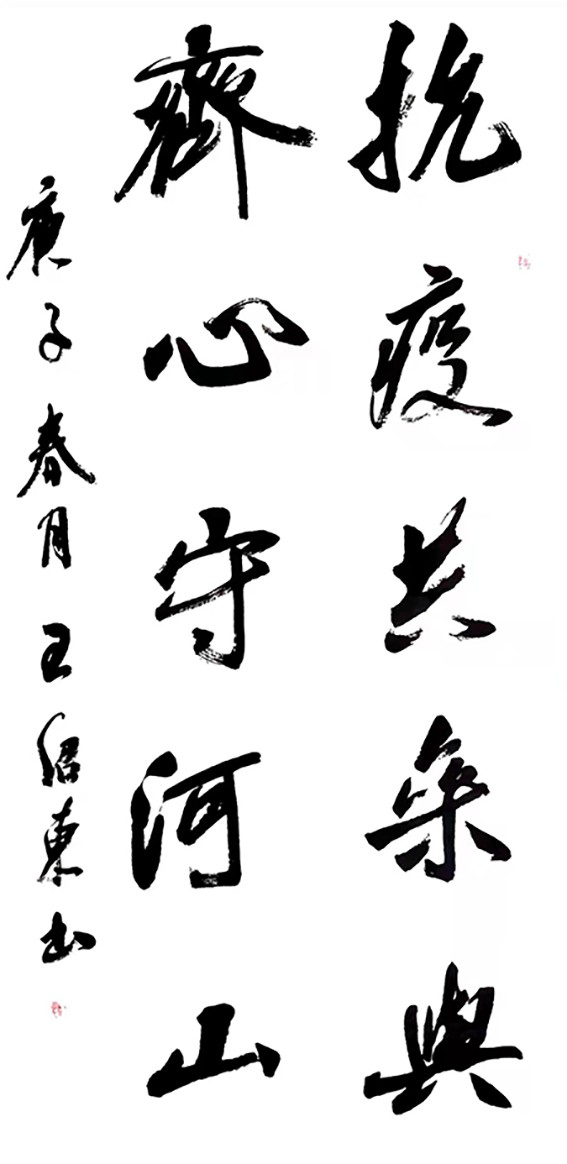 抗疫共參與
齊心守河山
庚子春月王紹東书